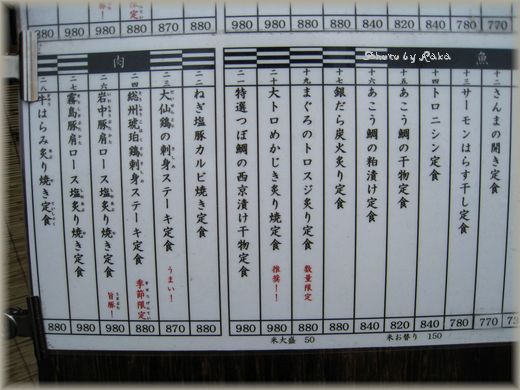 Photo by Raka
魚
十二 さんまの開き定食 770
十三 サーモンはらす干し定食 780
十四 トロニシン定食 840
十五 あこう鯛の干物定食 820
十六 あこう鯛の粕漬け定食 840
十七 銀だら炭火炙り定食 880
十九 まぐろのトロスジ炙り定食 数量限定 880
二十 大トロめかじき炙り焼定食 推奨! 980
二一 特選つぼ鯛の西京漬け干物定食 980
肉
二二 ねぎ塩豚カルビ焼き定食 880
二三 大仙鶏の刺身ステーキ定食 うまい! 870
二四 総州琥珀鶏刺身ステーキ定食 季節限定 880
二六 岩中豚肩ロース塩炙り焼き定食 旨豚! 980
二七 霧島豚肩ロース塩炙り焼き定食 980
二八 牛はらみ炙り焼き定食 880
米大盛 50
米お替り 150